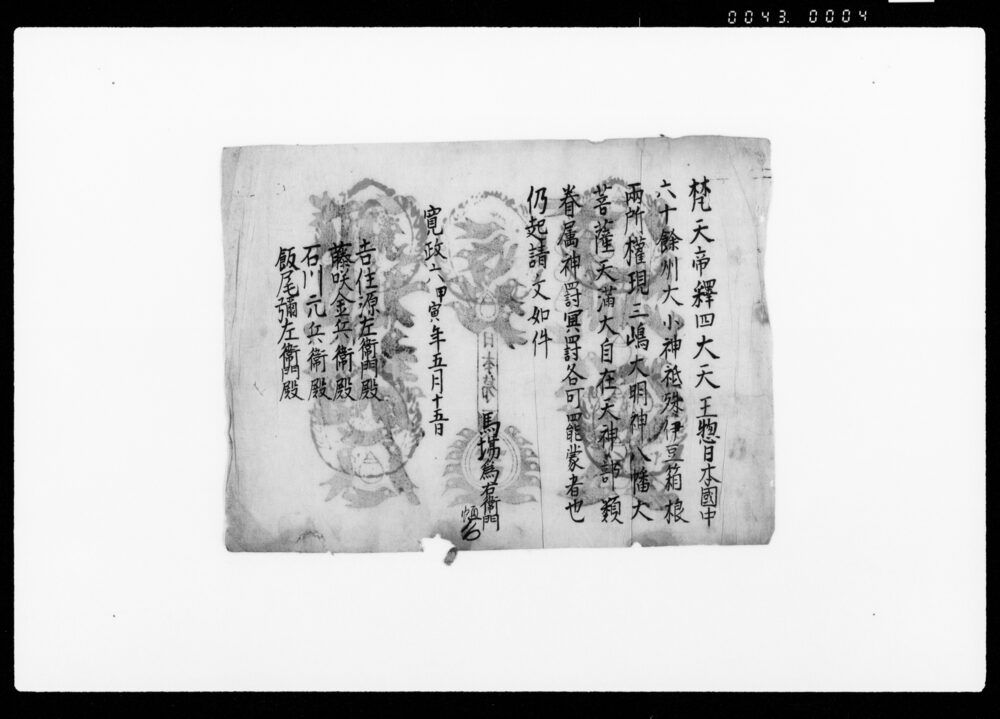 0043. 0004
梵天帝釋四大天王惣日本國中
六十餘州大小神祇殊伊豆箱根
兩所權現三嶋大明神八幡大
菩薩天滿大自在天神部類
眷属神罸冥罸各可罷蒙者也
仍起請文如件
日本第
馬場爲右衛門
寛政六甲寅年五月十五日
吉住源左衛門殿
藤咲金兵衛殿
石川元兵衛殿
飯尾彌左衛門殿